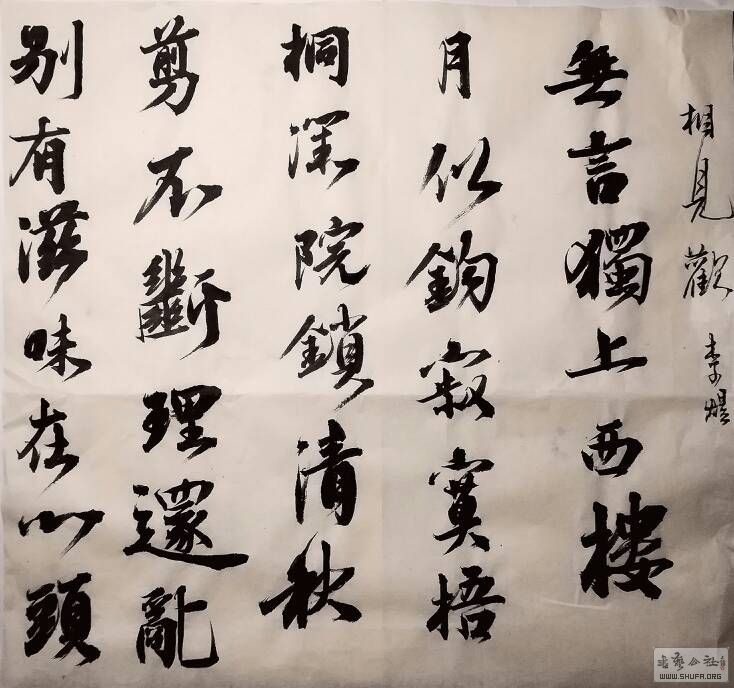 相見歡 李煜
無言獨上西樓
月似鈎寂寞梧
桐深院鎖清秋
剪不斷理還亂
别有滋味在心頭
WWW.SHUFA.ORG